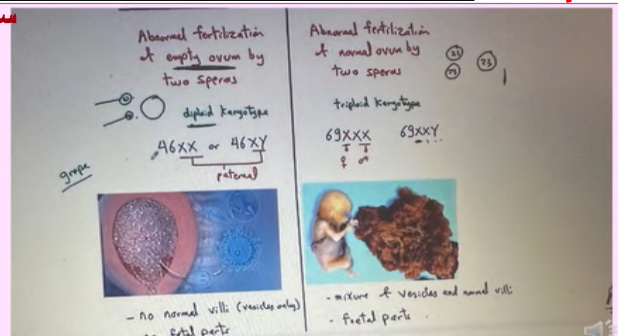 Abnormal fertilization
of empty ovum by
two sperms
diploid Karyotype
46XX or 46XY
paternal
grape
- no normal villi (vesicles only)
fetal parts
Abnormal fertilization
of normal ovum by
two sperms
23
triploid Karyotype
69XXX 69XXY
♀ ♂
- mixture of vesicles and normal villi
- foetal parts.